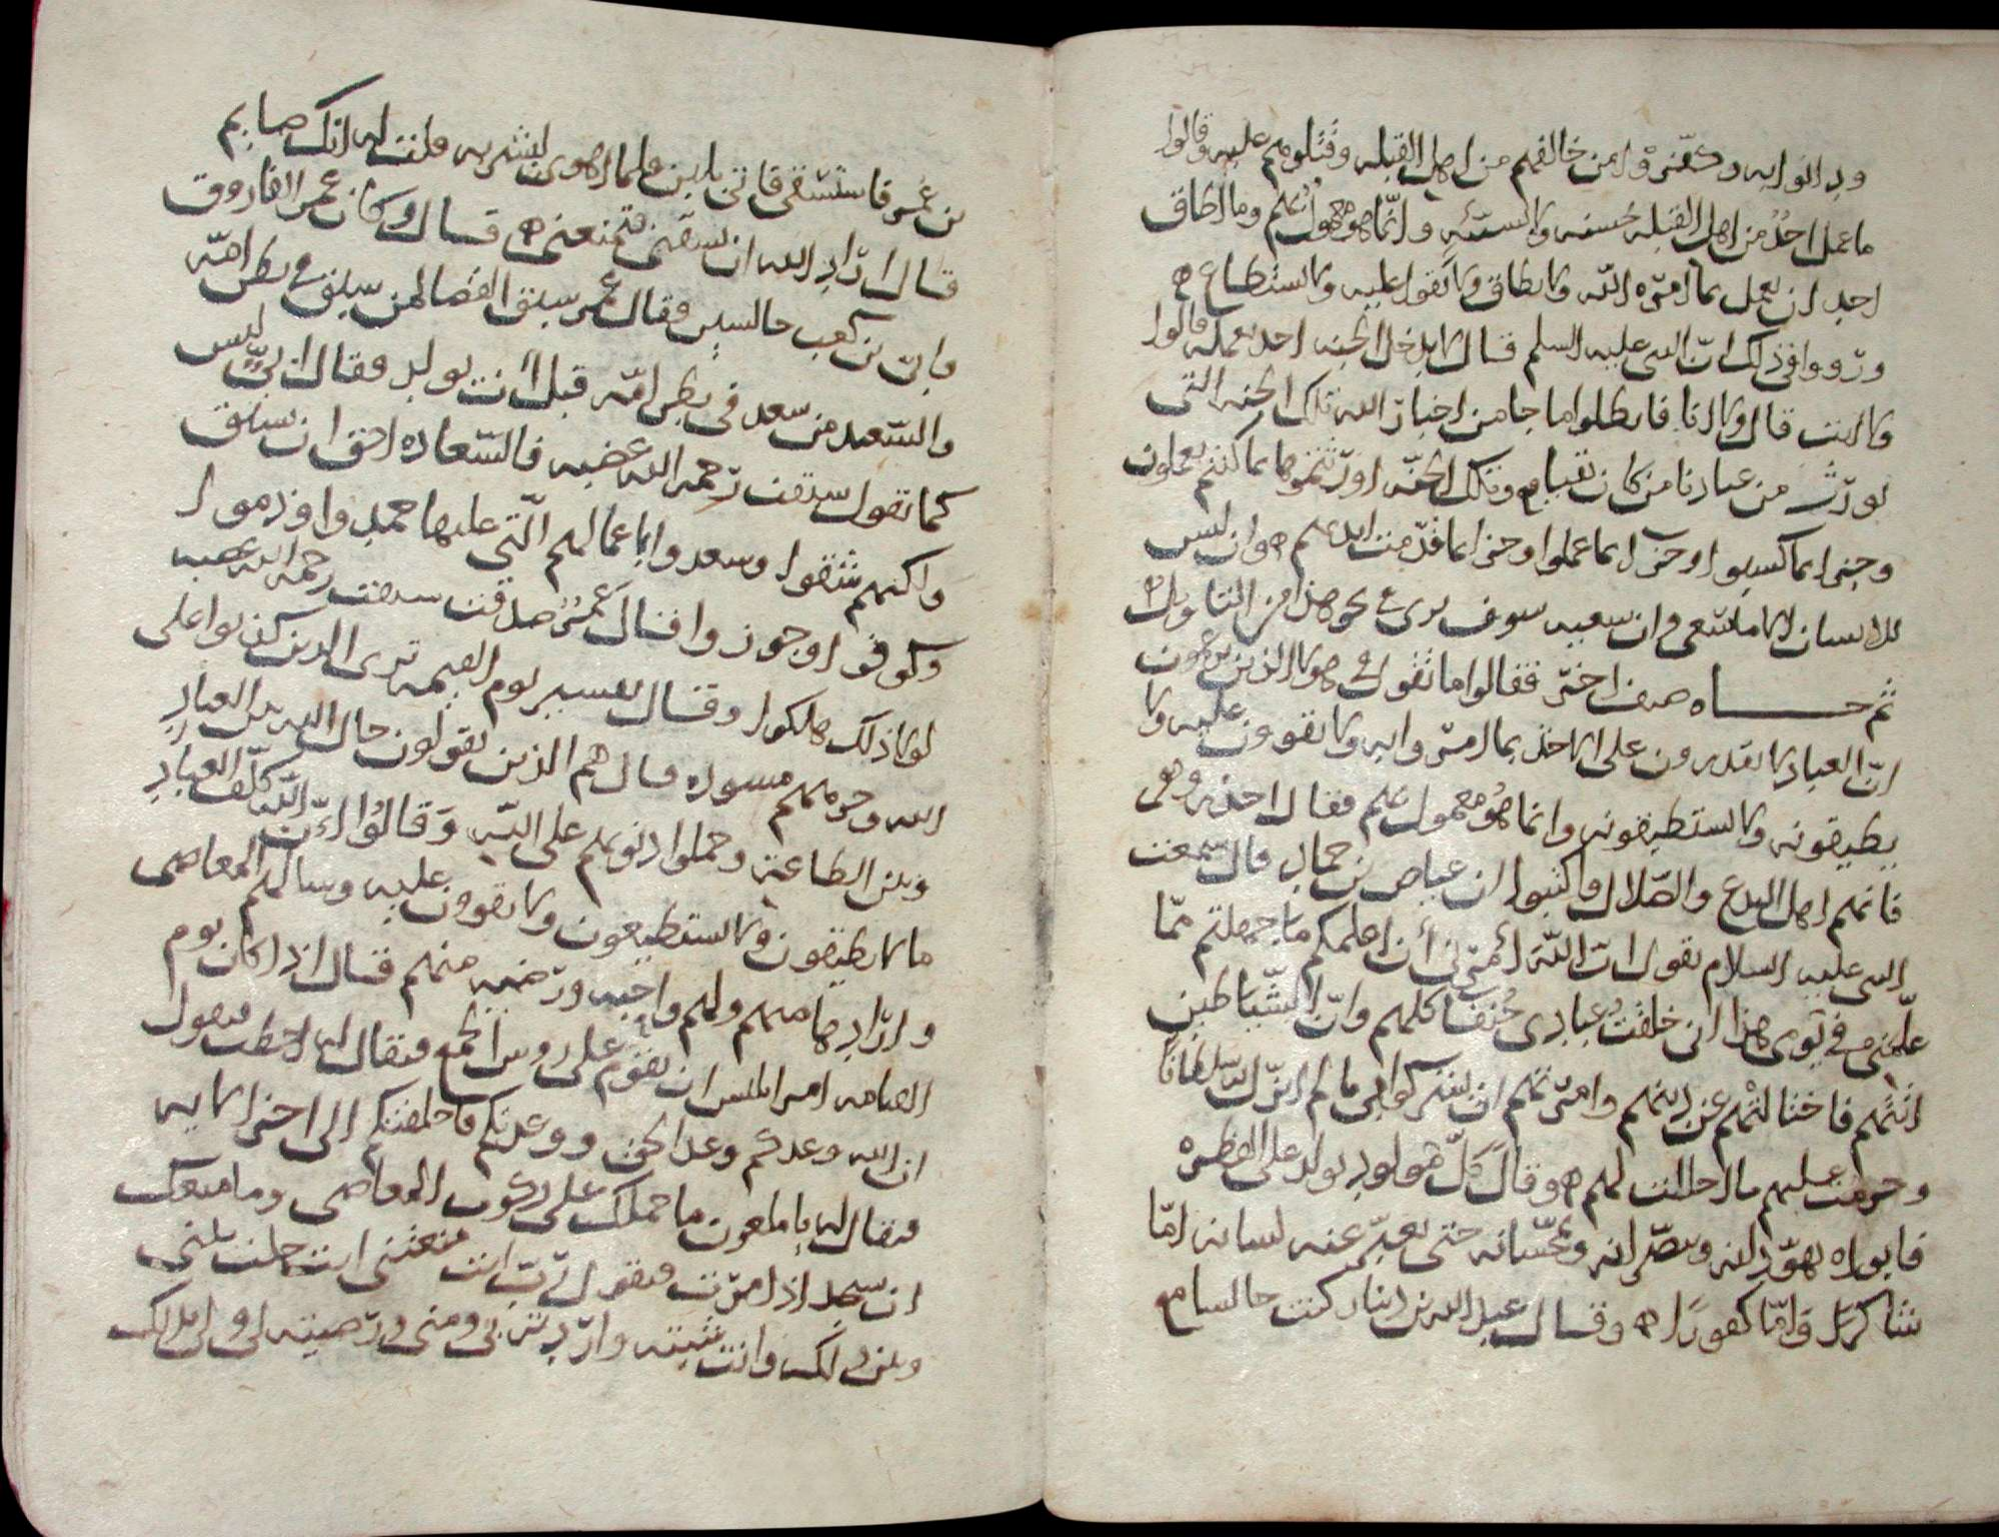 ودانوا به وكفروا من خالفهم من اهل القبله وقتلوهم عليه وقالوا
ما عمل احد من اهل القبله حسنه ولا سيئه وانما هو معمول بهم وما اطاق
احد ان يعمل بما امره الله ولا يطاق ولا يقوا عليه ولا يستطاع
ورووا في ذلك ان النبي عليه السلم قال لا يدخل الجنه احد بعمله قالوا
ولا انت قال ولا انا فابطلوا ما جا من اخبار الله تلك الجنه التي
نورث من عبادنا من كان تقيا وتلك الجنه اورثتموها بما كنتم تعملون
وجزا بما كسبوا وجزا بما عملوا وجزا بما قدمت ايديهم وان ليس
للانسان الا ما سعى وان سعيه سوف يرى نحو هذا من التاويل
ثم جاه صنف اخر فقالوا ما تقول في هولا الذين يزعمون
ان العباد لا يقدرون على الاخذ بما امروا به ولا يقوون عليه ولا
يطيقونه ولا يستطيعونه وانما هو معمول بهم فقال احذروهم
فانهم اهل البدع والضلال واكتبوا ان عياض بن حماد قال سمعت
النبي عليه السلام يقول ان الله امرني أن اعلمكم ما جهلتم مما
علمني في يومي هذا اني خلقت عبادي حنفا كلهم وان الشياطين
اتتهم فاختالتهم عن دينهم وامرتهم ان يشركوا بي ما لم انزل به سلطانا
وحرمت عليهم ما احللت لهم وقال كل مولود يولد على الفطره
فابواه يهودانه وينصرانه ويمجسانه حتى يعبر عنه لسانه اما
شاكرا واما كفورا وقال عبد الله بن دينار كنت جالسا مع
بن عمر فاستسقى فاتي بلبن فلما اهوى ليشربه قلت له انك صايم
قال اراد الله ان يسقيني فتمنعني قال وكان عمر الفاروق
وابي بن كعب جالسين فقال عمر سبق القضا لمن سبق في بطن امه
والسعيد من سعد في بطن امه قبل أن يولد فقال ابي ليس
كما تقول سبقت رحمه الله غضبه فالسعاده احق ان تسبق
ولكنهم شقوا وسعدوا باعمالهم التي عليها حمدوا وذموا
وكوفوا وجوزوا فقال عمر صدقت سبقت رحمه الله غضبه
لولا ذلك هلكوا وقال تفسير يوم القيمه ترى الذين كذبوا على
الله وجوههم مسوده قال هم الذين يقولون حال الله بين العباد
وبين الطاعة وحملوا ذنوبهم على الله وقالوا ان الله كلف العباد
ما لا يطيقون ولا يستطيعون ولا يقوون عليه وسالهم المعاصي
وارادها منهم ولهم واحبه ورضيه منهم قال اذا كان يوم
القيامه امر ابليس ان يقوم على روس الجمع فيقال له اخطب فيقول
ان الله وعدكم وعد الحق ووعدتكم فاخلفتكم الى اخر الايه
فيقال له يا ملعون ما حملك على ركوب المعاصي وما منعك
ان تسجد اذ امرت فيقول رب انت منعتني انت حلت بيني
وبين ذلك وانت شيته واردته بي ومني ورضيته لي ولي ملك